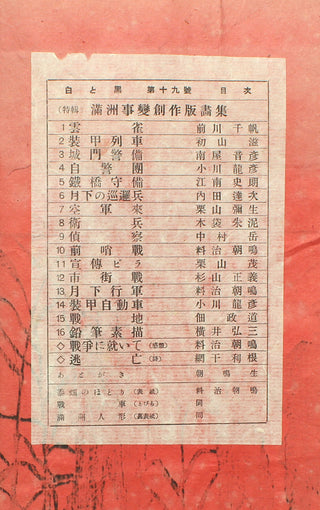 白と黒 第十九號 目次
(特輯) 滿洲事變創作版畫集
1 雲雀 前川千帆
2 裝甲列車 初山滋
3 城門警備 南屋音彦
4 自警團 小川龍彦
5 鐵橋守備 江南史朗
6 月下の巡邏兵 內田達次
7 空軍來 栗山彌生
8 衛兵 木袋朱泥
9 偵察 中村岳
10 前哨戰 料治朝鳴
11 宣傳ビラ 栗山茂
12 市街戰 杉山正義
13 月下行軍 料治朝鳴
14 裝甲自動車 小川龍彦
15 戰地 佃政道
16 鉛筆素描 橫井弘三
◇ 戰爭に就いて (感想) 料治朝鳴
◇ 逃亡 (詩) 網干利根
あとがき 朝鳴生
のほとり (表紙) 料治朝鳴
戰車 (とびら) 同
滿洲人形 (裏表紙) 同